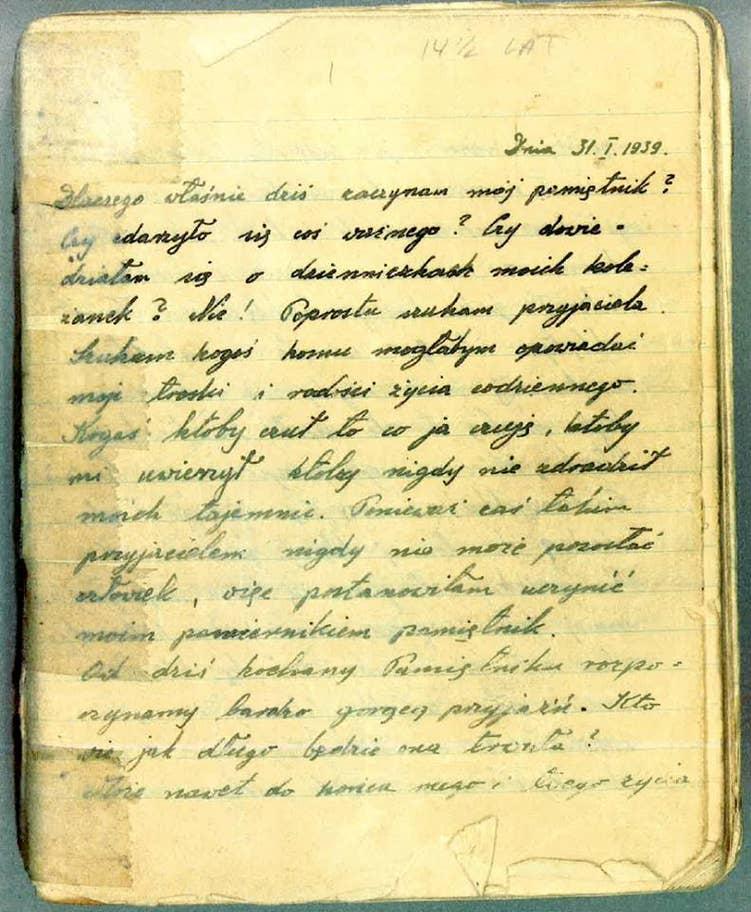 14 ½ LAT
1
Dnia 31.I.1939.
Dlaczego właśnie dziś zaczynam mój pamiętnik?
Czy zdarzyło się coś ważnego? Czy dowie-
działam się o dzienniczkach moich kole=
żanek? Nie! Poprostu szukam przyjaciela.
Szukam kogoś komu mogłabym opowiadać
moje troski i radości życia codziennego.
Kogoś któby czuł to co ja czuję, któby
mi uwierzył któby nigdy nie zdradził
moich tajemnic. Ponieważ zaś takim
przyjacielem nigdy nie może pozostać
człowiek, więc postanowiłam uczynić
moim powiernikiem pamiętnik.
Od dziś kochany Pamiętniku rozpo=
czynamy bardzo gorącą przyjaźń. Kto
wie jak długo będzie ona trwała?
Może nawet do końca mego i twego życia